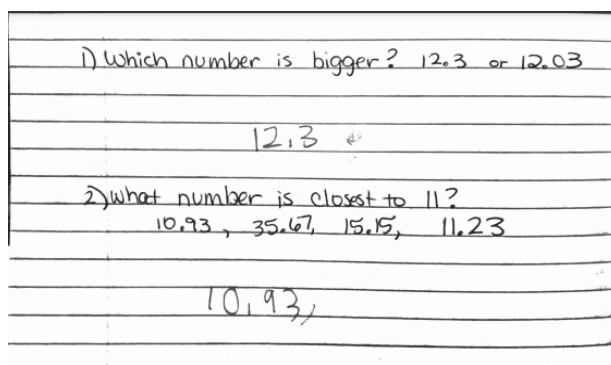 1) Which number is bigger? 12.3 or 12.03
12.3
2) what number is closest to 11?
10.93, 35.67, 15.15, 11.23
10.93,